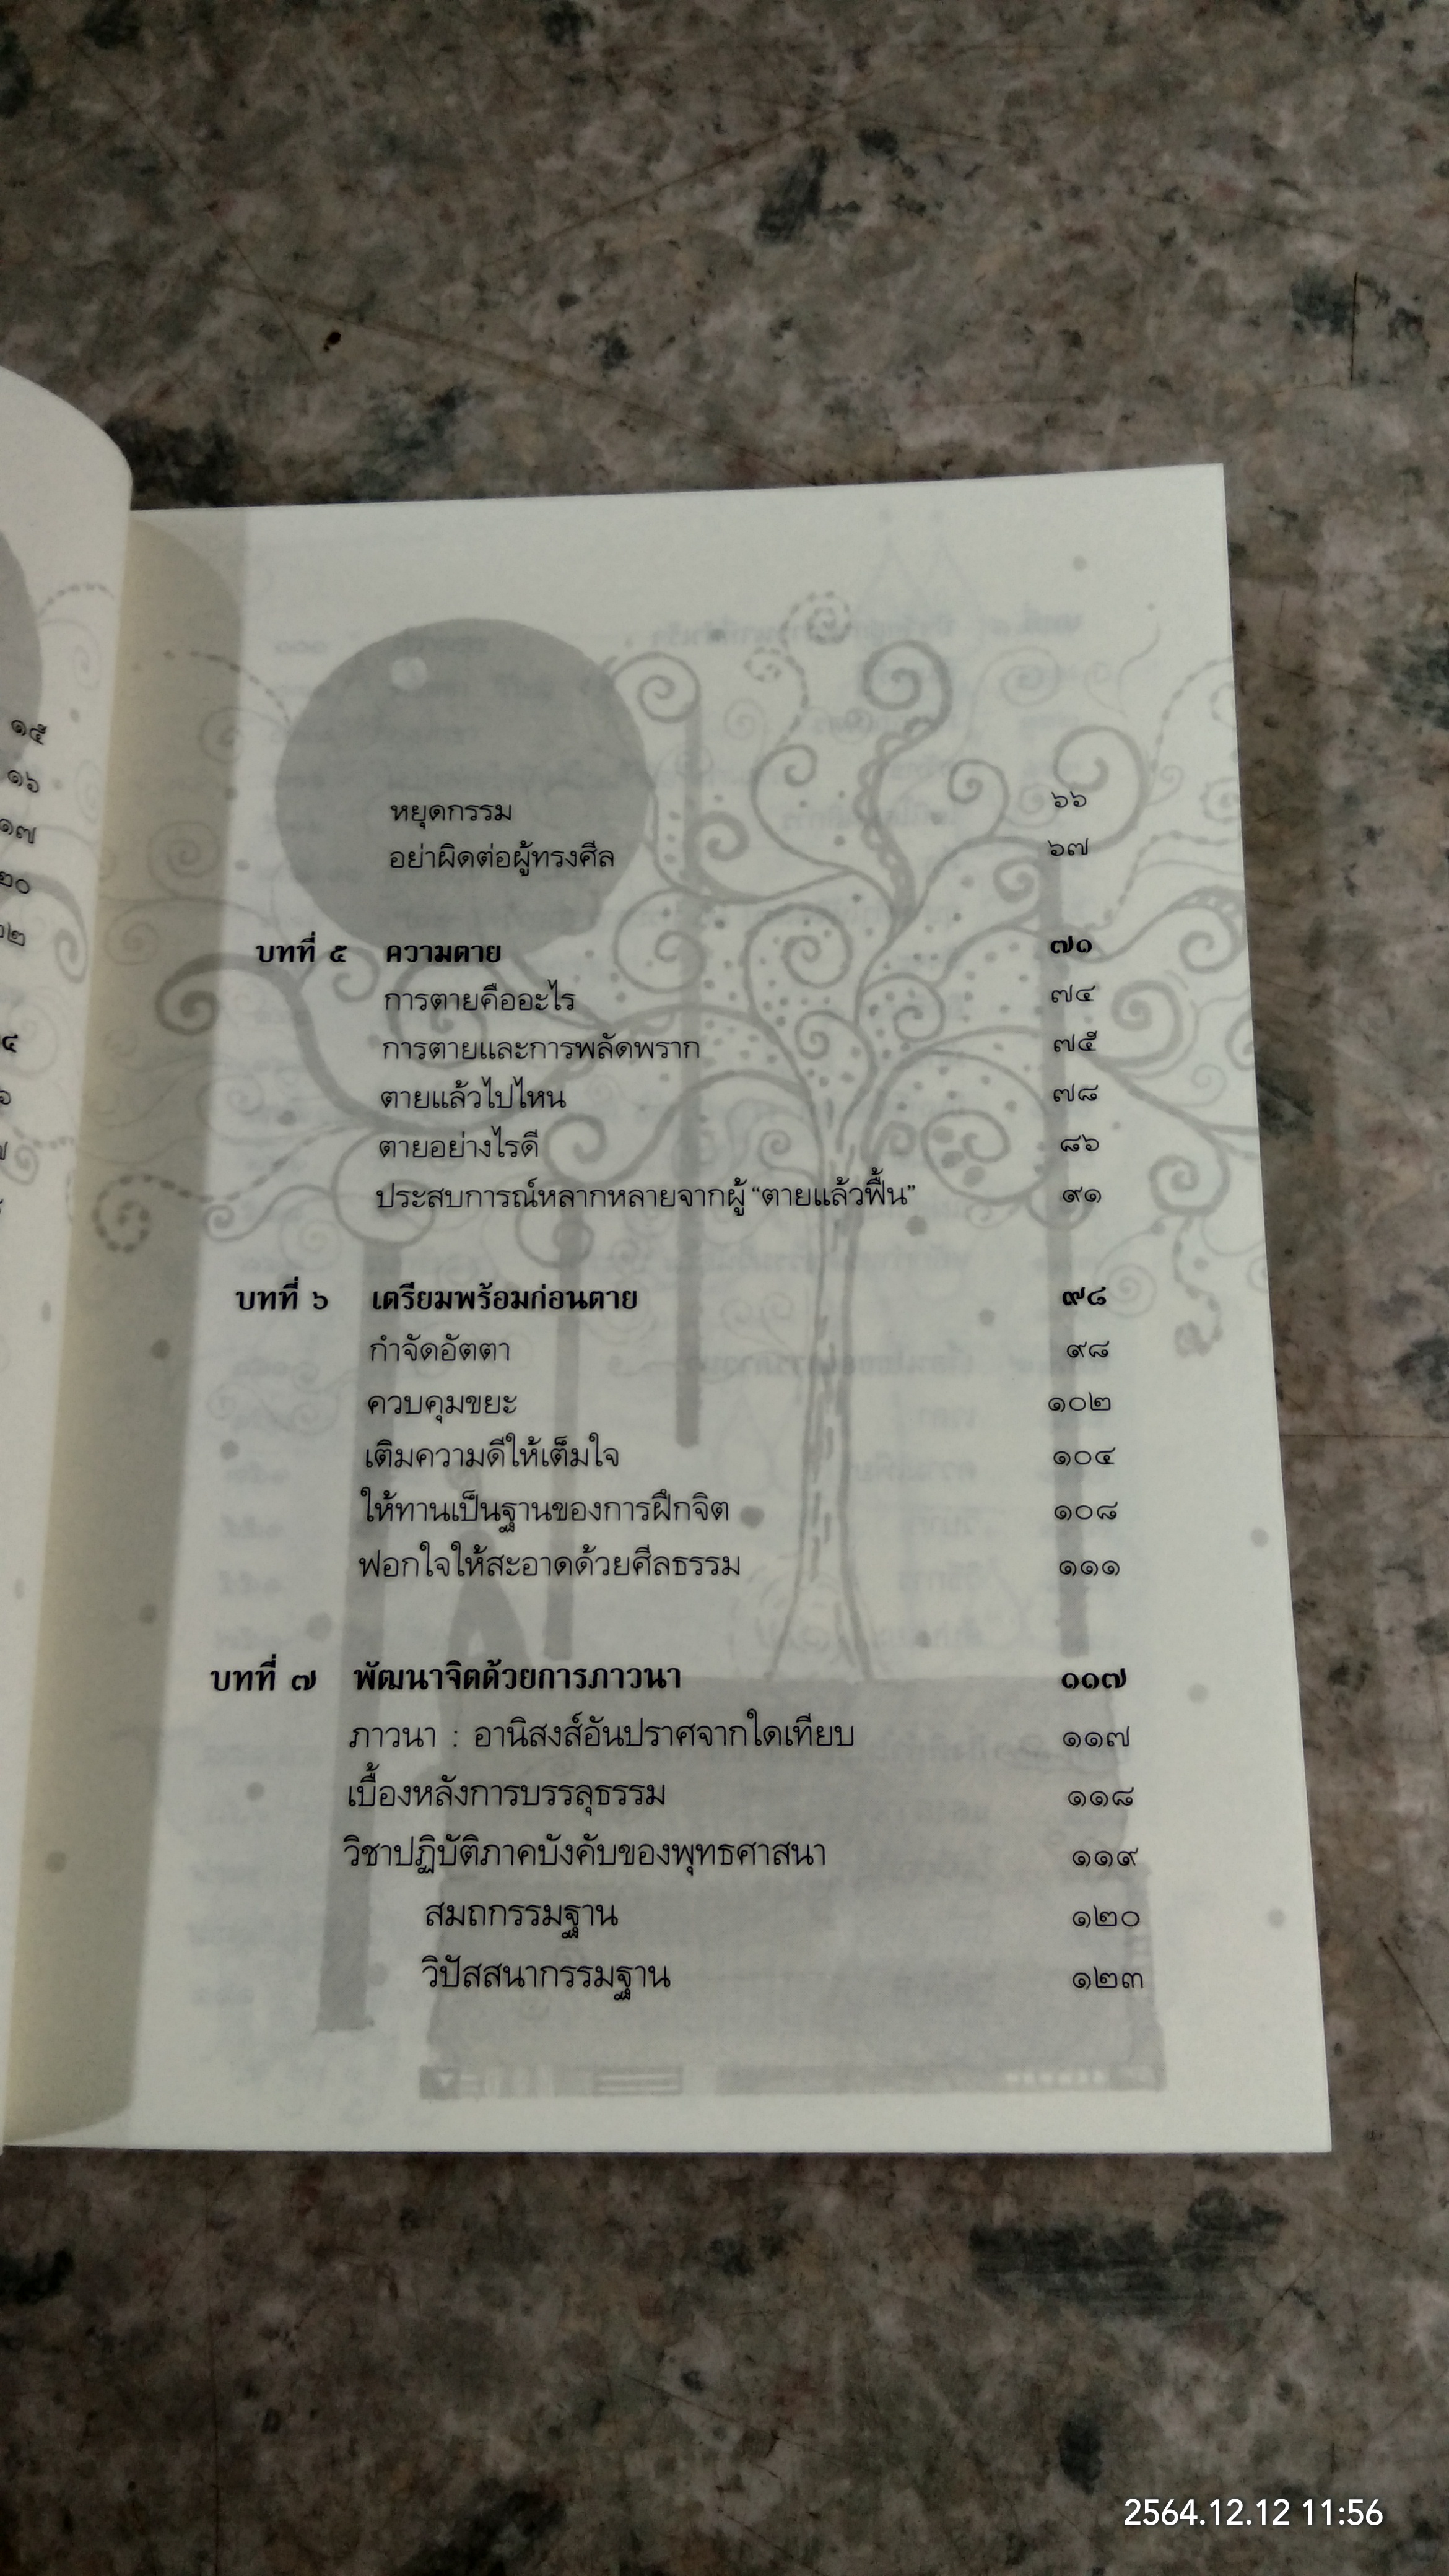 ๑๕
๑๖
๑๗
๒๐
หยุดกรรม ๖๖
อย่าผิดต่อผู้ทรงศีล ๖๗
บทที่ ๕ ความตาย ๗๑
การตายคืออะไร ๗๔
การตายและการพลัดพราก ๗๕
ตายแล้วไปไหน ๗๘
ตายอย่างไรดี ๘๖
ประสบการณ์หลากหลายจากผู้ “ตายแล้วฟื้น” ๙๑
บทที่ ๖ เตรียมพร้อมก่อนตาย ๙๘
กำจัดอัตตา ๙๘
ควบคุมขยะ ๑๐๒
เติมความดีให้เต็มใจ ๑๐๔
ให้ทานเป็นฐานของการฝึกจิต ๑๐๘
ฟอกใจให้สะอาดด้วยศีลธรรม ๑๑๑
บทที่ ๗ พัฒนาจิตด้วยการภาวนา ๑๑๗
ภาวนา : อานิสงส์อันปราศจากใดเทียบ ๑๑๗
เบื้องหลังการบรรลุธรรม ๑๑๘
วิชาปฏิบัติภาคบังคับของพุทธศาสนา ๑๑๙
สมถกรรมฐาน ๑๒๐
วิปัสสนากรรมฐาน ๑๒๓
2564.12.12 11:56